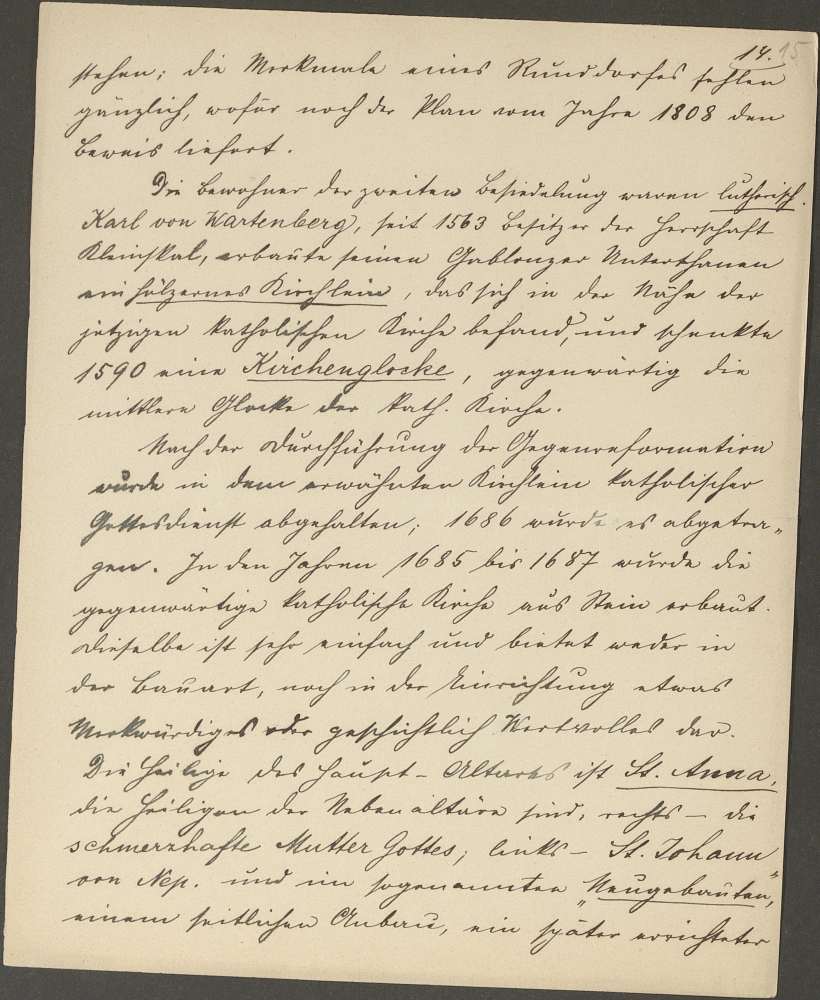 14. 15
stehen; die Merkmale eines Runddorfes fehlen
gänzlich, wofür noch der Plan vom Jahre 1808 den
Beweis liefert.
Die Bewohner der zweiten Besiedelung waren lutherisch.
Karl von Wartenberg, seit 1563 Besitzer der Herrschaft
Kleinskal, erbaute seinen Gablonzer Unterthanen
ein hölzernes Kirchlein, das sich in der Nähe der
jetzigen katholischen Kirche befand, und schenkte
1590 eine Kirchenglocke, gegenwärtig die
mittlere Glocke der kath. Kirche.
Nach der Durchführung der Gegenreformation
wurde in dem erwähnten Kirchlein katholischer
Gottesdienst abgehalten; 1686 wurde es abgetra„
gen. In den Jahren 1685 bis 1687 wurde die
gegenwärtige katholische Kirche aus Stein erbaut.
Dieselbe ist sehr einfach und bietet weder in
der Bauart, noch in der Einrichtung etwas
Merkwürdiges oder geschichtlich Wertvolles dar.
Die Heilige des Haupt-Altares ist St. Anna,
die Heiligen der Nebenaltäre sind, rechts – die
schmerzhafte Mutter Gottes; links – St. Johann
von Nep. und im sogenannten „Neugebauten,"
einem seitlichen Anbau, ein später errichteter